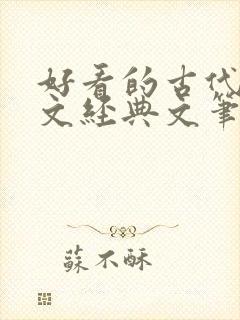 好看的古代
文经典文笔
蘇不酥